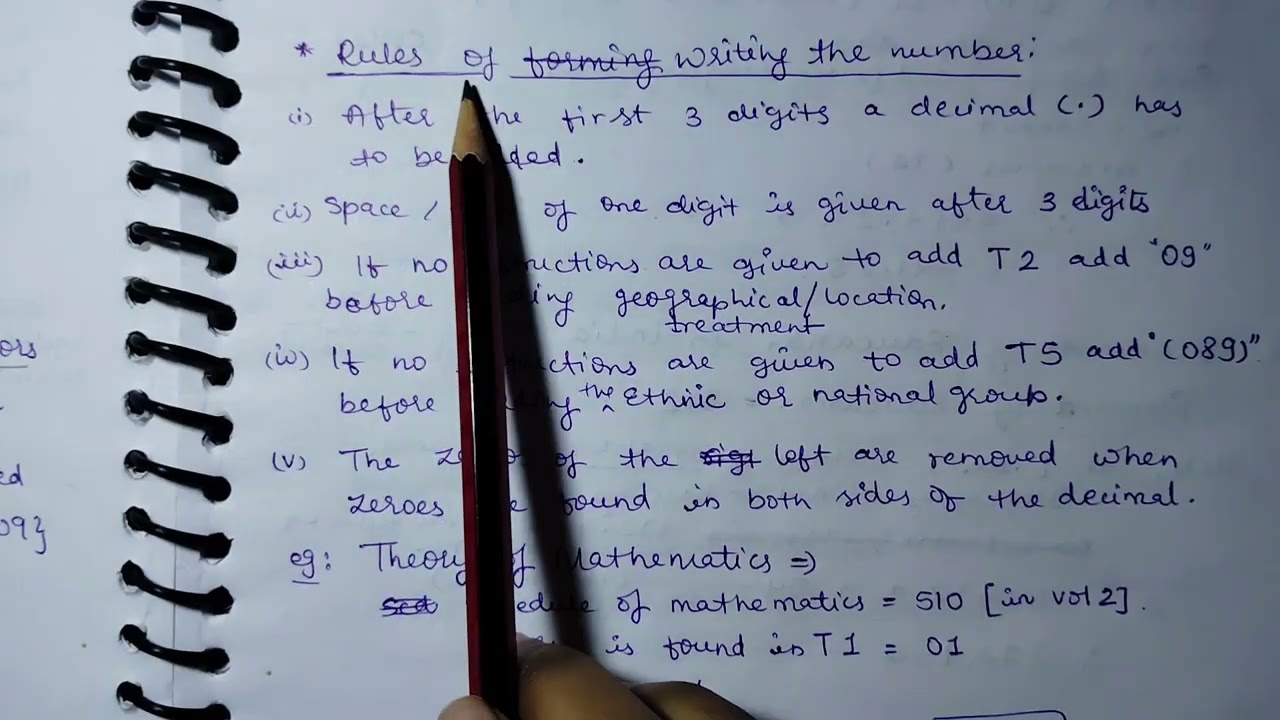 * Rules of forming writing the number:
(i) After the first 3 digits a decimal (.) has
to be added.
(ii) Space / of one digit is given after 3 digits
(iii) If no instructions are given to add T2 add "09"
before geographical/location.
treatment
(iv) If no instructions are given to add T5 add "(089)"
before the Ethnic or national group.
(v) The of the left are removed when
zeroes are found in both sides of the decimal.
eg: Theory of Mathematics =>
of mathematics = 510 [in vol 2].
is found in T1 = 01
ors
ed
09}